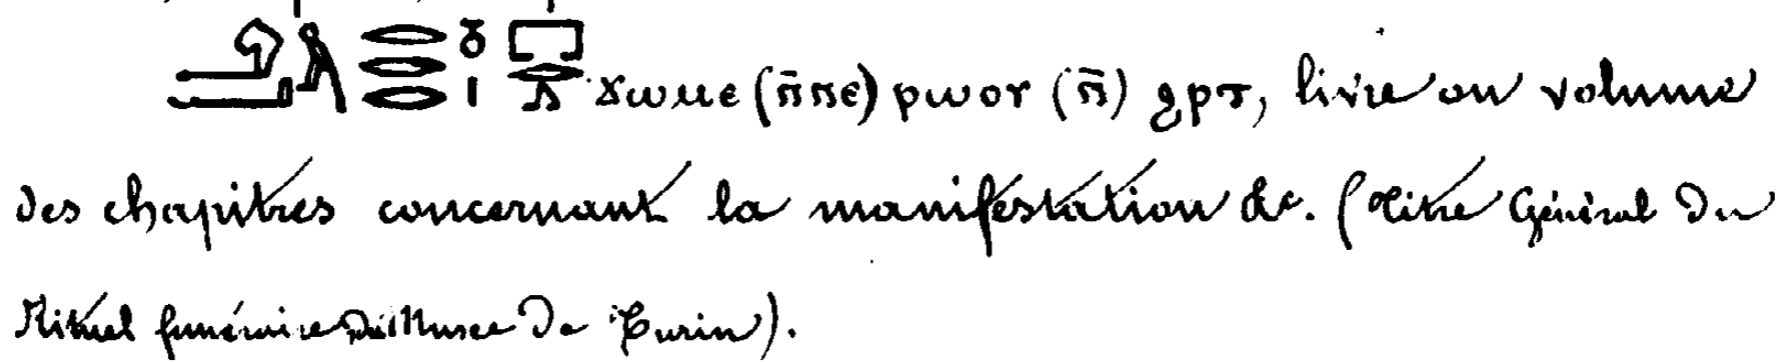 ϫωⲙⲉ (ⲛ̄ⲛⲉ) ⲣⲱⲟⲩ (ⲛ̄) ϩⲣⲧ, livre ou volume
des chapitres concernant la manifestation &c. (Titre Général du
Rituel funéraire du Musée de Turin).